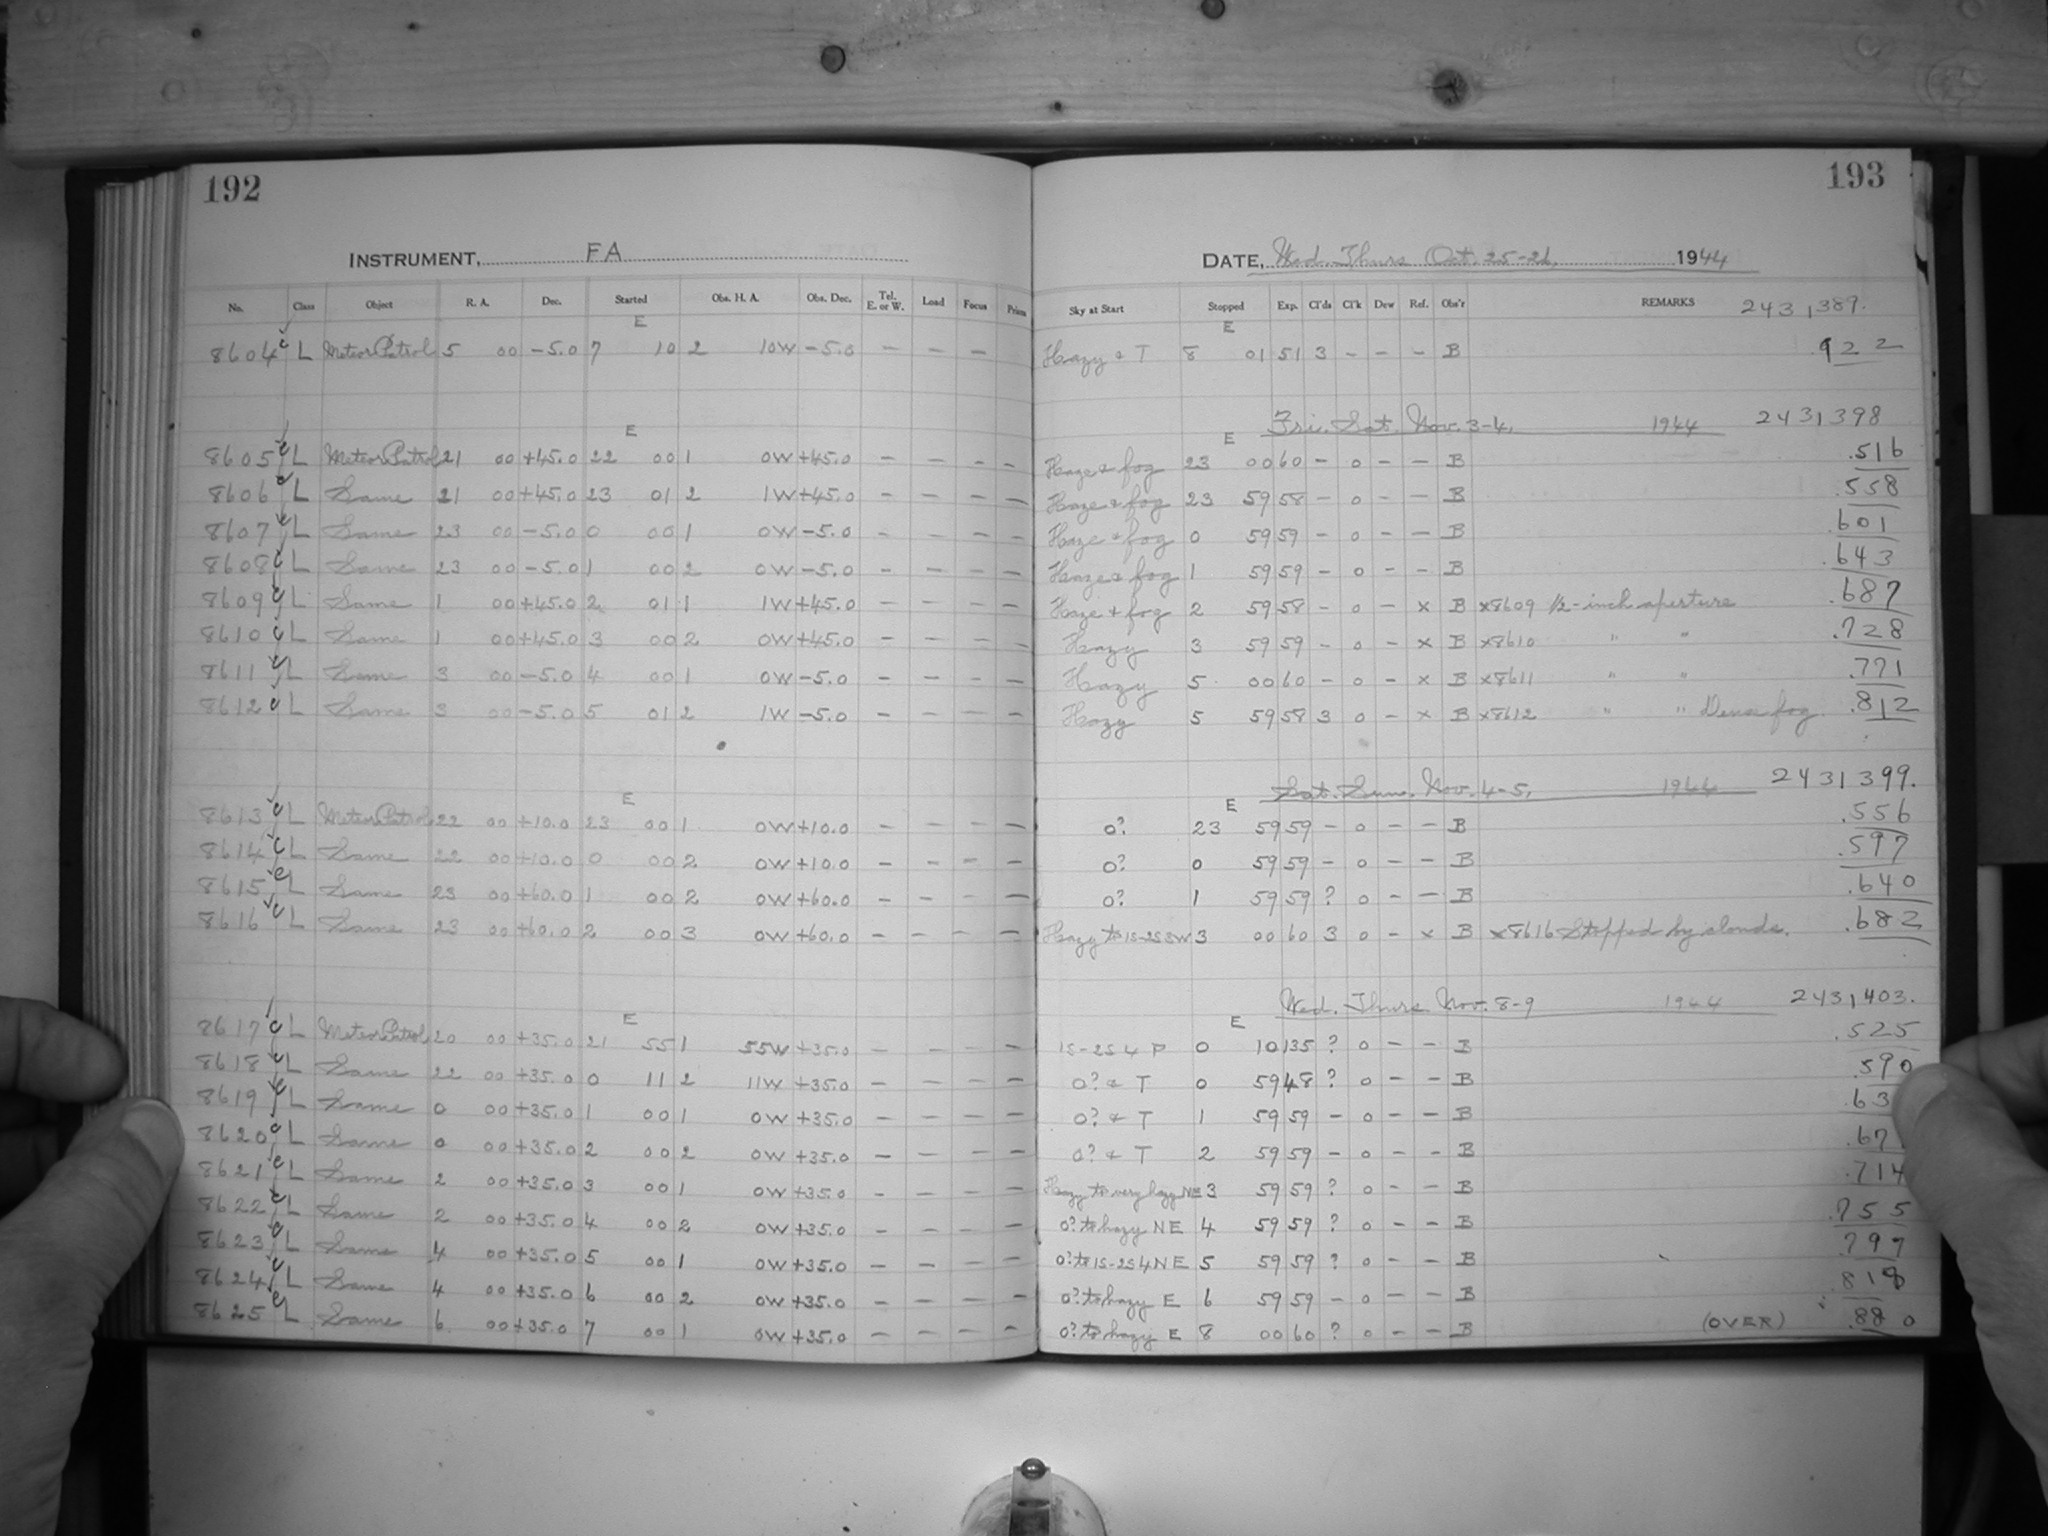 192
INSTRUMENT, FA
No. Class Object R. A. Dec. Started Obs. H. A. Obs. Dec. Tel. E. or W. Load Focus Prism
E
8604 c L Meteor Patrol 5 00 -5.0 7 10 2 10W -5.0 - - -
E
8605 c L Meteor Patrol 21 00 +45.0 22 00 1 0W +45.0 - - - -
8606 c L Same 21 00 +45.0 23 01 2 1W +45.0 - - - -
8607 c L Same 23 00 -5.0 0 00 1 0W -5.0 - - - -
8608 c L Same 23 00 -5.0 1 00 2 0W -5.0 - - - -
8609 c L Same 1 00 +45.0 2 01 1 1W +45.0 - - - -
8610 c L Same 1 00 +45.0 3 00 2 0W +45.0 - - - -
8611 c L Same 3 00 -5.0 4 00 1 0W -5.0 - - - -
8612 c L Same 3 00 -5.0 5 01 2 1W -5.0 - - - -
E
8613 c L Meteor Patrol 22 00 +10.0 23 00 1 0W +10.0 - - - -
8614 c L Same 22 00 +10.0 0 00 2 0W +10.0 - - - -
8615 c L Same 23 00 +60.0 1 00 2 0W +60.0 - - - -
8616 c L Same 23 00 +60.0 2 00 3 0W +60.0 - - - -
E
8617 c L Meteor Patrol 20 00 +35.0 21 55 1 55W +35.0 - - - -
8618 c L Same 22 00 +35.0 0 11 2 11W +35.0 - - - -
8619 c L Same 0 00 +35.0 1 00 1 0W +35.0 - - - -
8620 c L Same 0 00 +35.0 2 00 2 0W +35.0 - - - -
8621 c L Same 2 00 +35.0 3 00 1 0W +35.0 - - - -
8622 c L Same 2 00 +35.0 4 00 2 0W +35.0 - - - -
8623 c L Same 4 00 +35.0 5 00 1 0W +35.0 - - - -
8624 c L Same 4 00 +35.0 6 00 2 0W +35.0 - - - -
8625 c L Same 6 00 +35.0 7 00 1 0W +35.0 - - - -
193
DATE, Wed. Thurs Oct. 25-26, 1944
Sky at Start Stopped Exp. Cl'ds Cl'k Dew Ref. Obs'r REMARKS 2431389.
E
Hazy & T 8 01 51 3 - - - B .922
Fri. Sat. Nov. 3-4, 1944 2431398
E
Haze & fog 23 00 60 - 0 - - B .516
Haze & fog 23 59 58 - 0 - - B .558
Haze & fog 0 59 59 - 0 - - B .601
Haze & fog 1 59 59 - 0 - - B .643
Haze & fog 2 59 58 - 0 - x B x8609 1/2-inch aperture .687
Hazy 3 59 59 - 0 - x B x8610 " " .728
Hazy 5 00 60 - 0 - x B x8611 " " .771
Hazy 5 59 58 3 0 - x B x8612 " " Dense fog. .812
Sat. Sun. Nov. 4-5, 1944 2431399.
E
0? 23 59 59 - 0 - - B .556
0? 0 59 59 - 0 - - B .597
0? 1 59 59 ? 0 - - B .640
Hazy to 1S-2S SW 3 00 60 3 0 - x B x8616 Stopped by clouds. .682
Wed. Thurs. Nov. 8-9 1944 2431403.
E
1S-2S 4 P 0 10 135 ? 0 - - B .525
0? & T 0 59 48 ? 0 - - B .590
0? & T 1 59 59 - 0 - - B .63
0? & T 2 59 59 - 0 - - B .67
Hazy to very hazy NE 3 59 59 ? 0 - - B .714
0? to hazy NE 4 59 59 ? 0 - - B .755
0? to 1S-2S 4 NE 5 59 59 ? 0 - - B .797
0? to hazy E 6 59 59 - 0 - - B
0? to hazy E 8 00 60 ? 0 - - B (OVER) .880